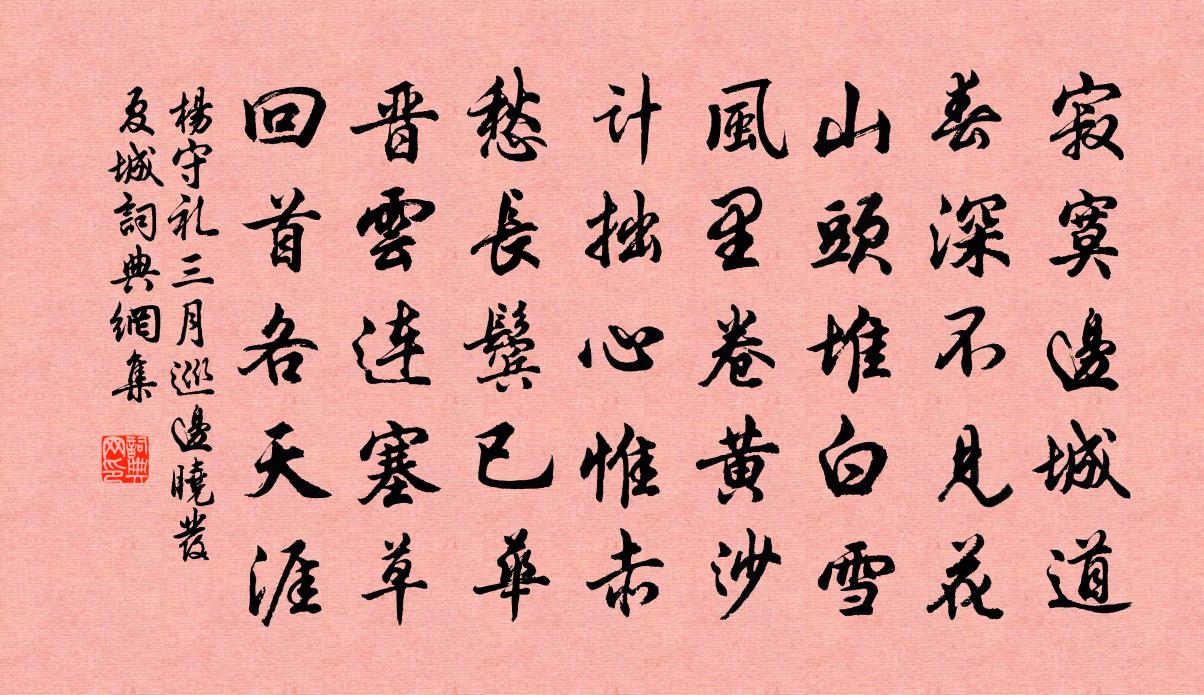 寂寞邊城道
春深不見花
山頭堆白雪
風里卷黄沙
计拙心惟赤
愁長鬢已華
晋雲連塞草
回首各天涯
楊守礼三月巡邊曉發
夏城詞典網集
詞典网印